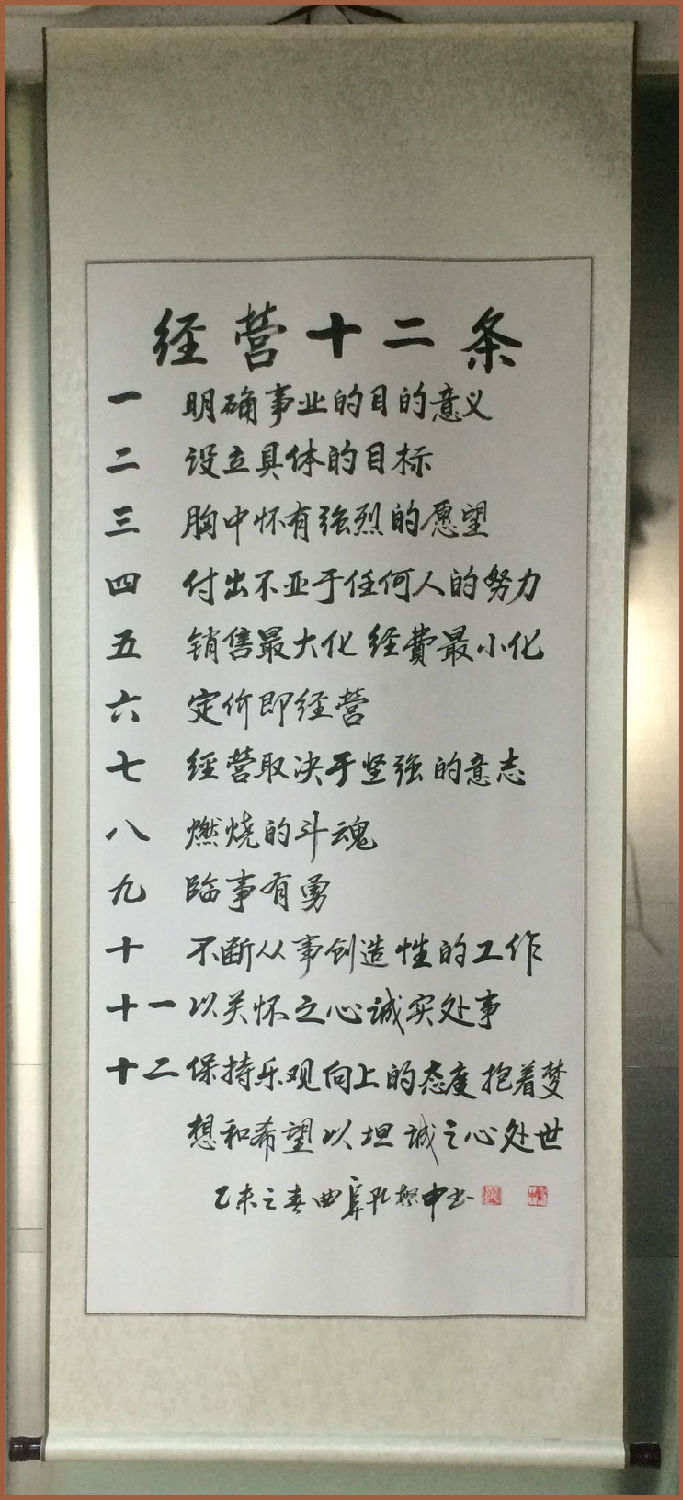 经营十二条
一 明确事业的目的意义
二 设立具体的目标
三 胸中怀有强烈的愿望
四 付出不亚于任何人的努力
五 销售最大化 经費最小化
六 定价即经营
七 经营取决于坚强的意志
八 燃烧的斗魂
九 临事有勇
十 不断从事创造性的工作
十一 以关怀之心诚实处事
十二 保持乐观向上的态度 抱着梦
想和希望以坦诚之心处世
乙未之春曲阜孔 中书